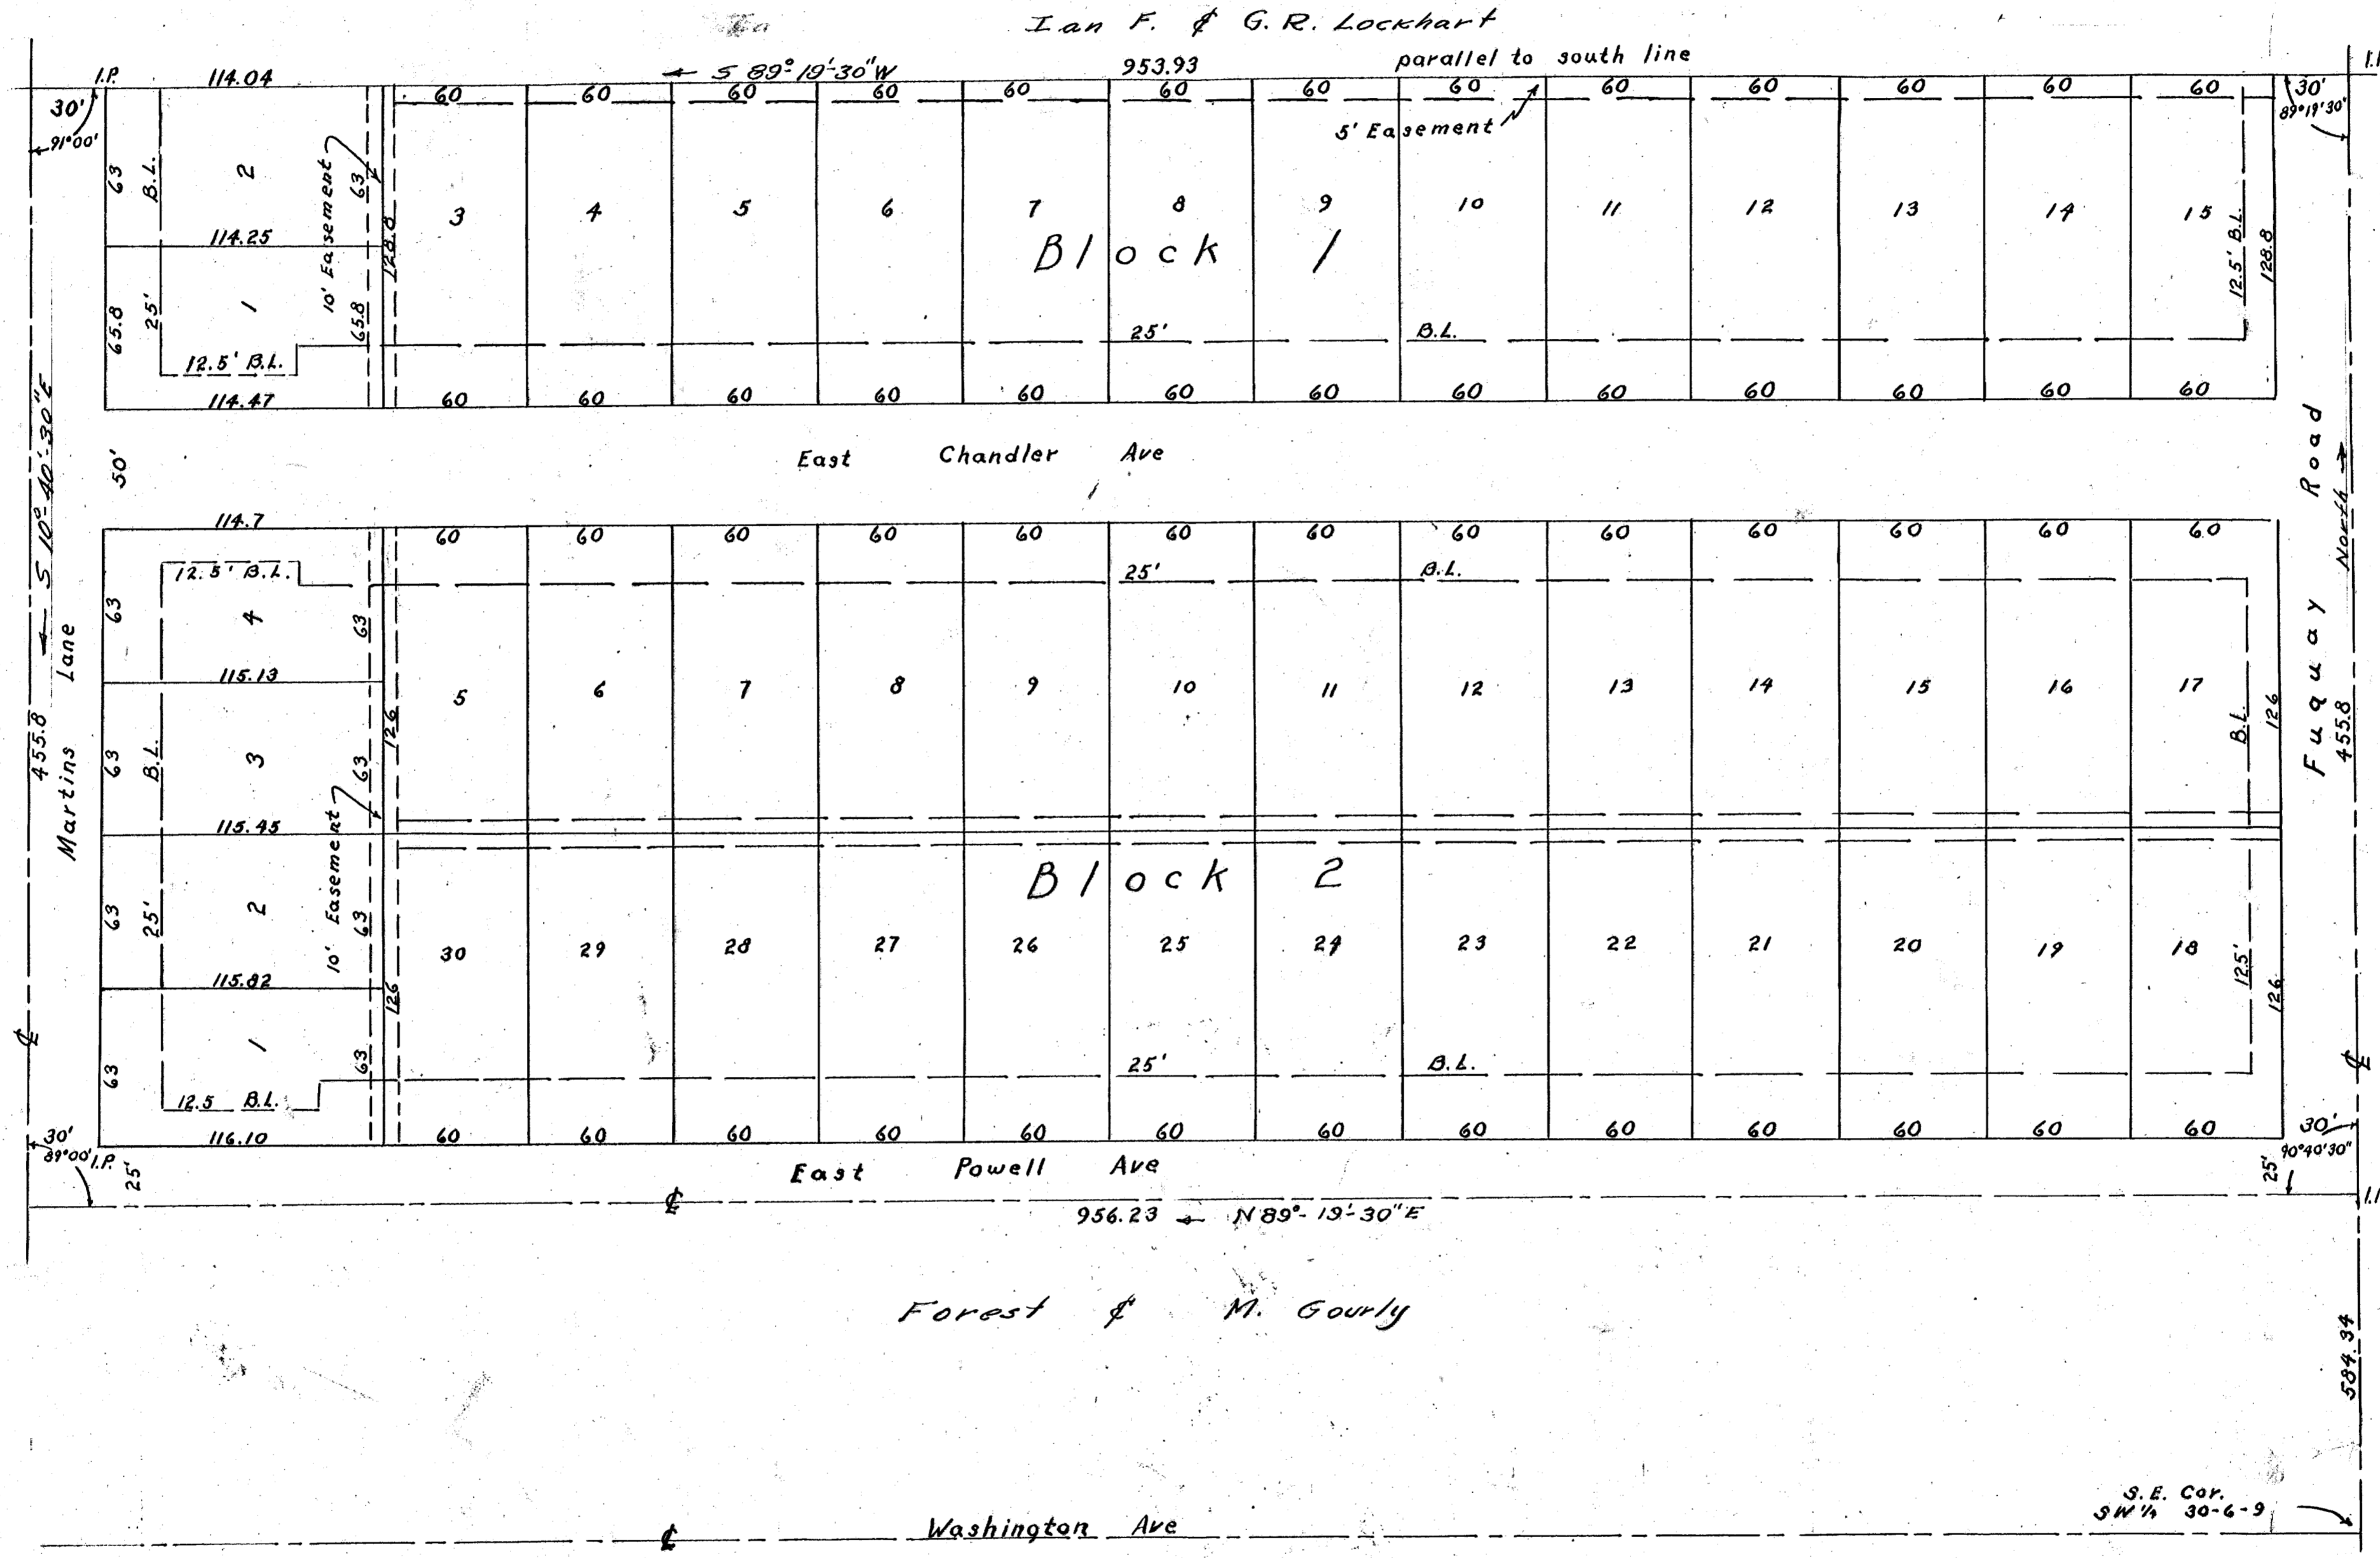 Ian F. & G.R. Lockhart
I.P. 114.04 ← S 89°-19'-30"W 953.93 parallel to south line I.I
30' 60 60 60 60 60 60 60 60 60 60 60 60 60 30'
91°00' 5' Easement 89°19'30"
63 B.L. 2 10' Easement 63 128.8 3 4 5 6 7 8 9 10 11 12 13 14 15 12.5' B.L. 128.8
114.25
Block 1
65.8 25' 1 65.8 25' B.L.
12.5' B.L.
114.47 60 60 60 60 60 60 60 60 60 60 60 60 60
50' East Chandler Ave
← S 10°-40'-30"E
455.8
Martins Lane
Fuquay Road
North →
455.8
114.7 60 60 60 60 60 60 60 60 60 60 60 60 60
12.5' B.L. 25' B.L.
63 4 63
115.13 126 5 6 7 8 9 10 11 12 13 14 15 16 17 B.L. 126
63 B.L. 3 63
115.45
10' Easement
Block 2
63 25' 2 63
30 29 28 27 26 25 24 23 22 21 20 19 18 12.5' 126
115.82 126
63 1 63 25' B.L.
12.5 B.L.
30' 116.10 60 60 60 60 60 60 60 60 60 60 60 60 60 30'
89°00' I.P. 25' East Powell Ave 25' 90°40'30"
℄ ℄ ℄ I.I
956.23 ← N 89°-19'-30"E
Forest & M. Gourly
584.34
S.E. Cor.
SW ¼ 30-6-9
℄ Washington Ave